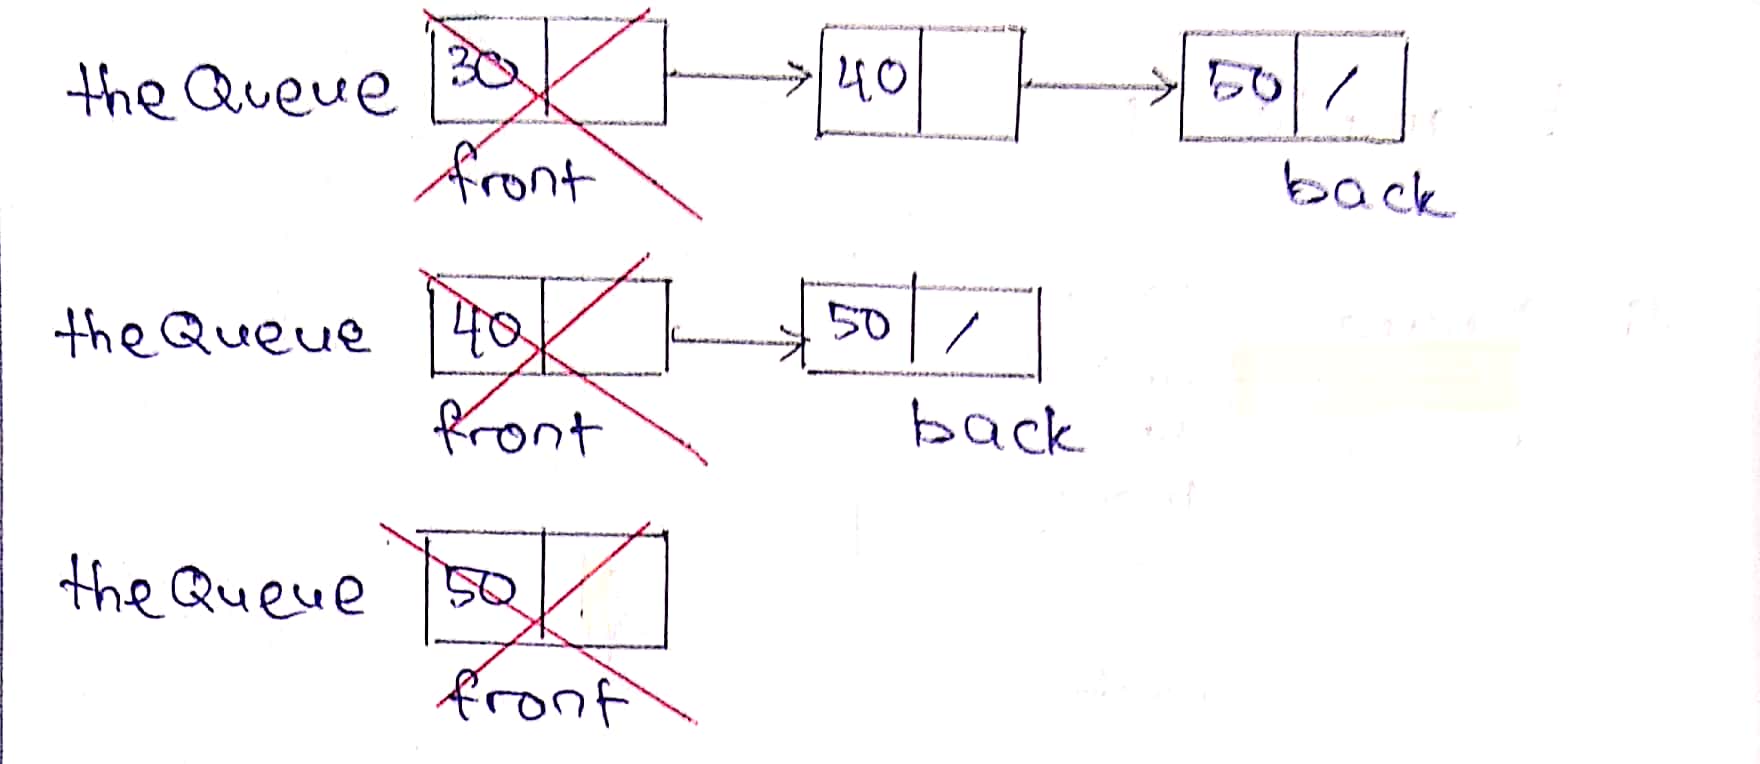 the Queue 30 40 50 /
front back
the Queue 40 50 /
front back
the Queue 50
front